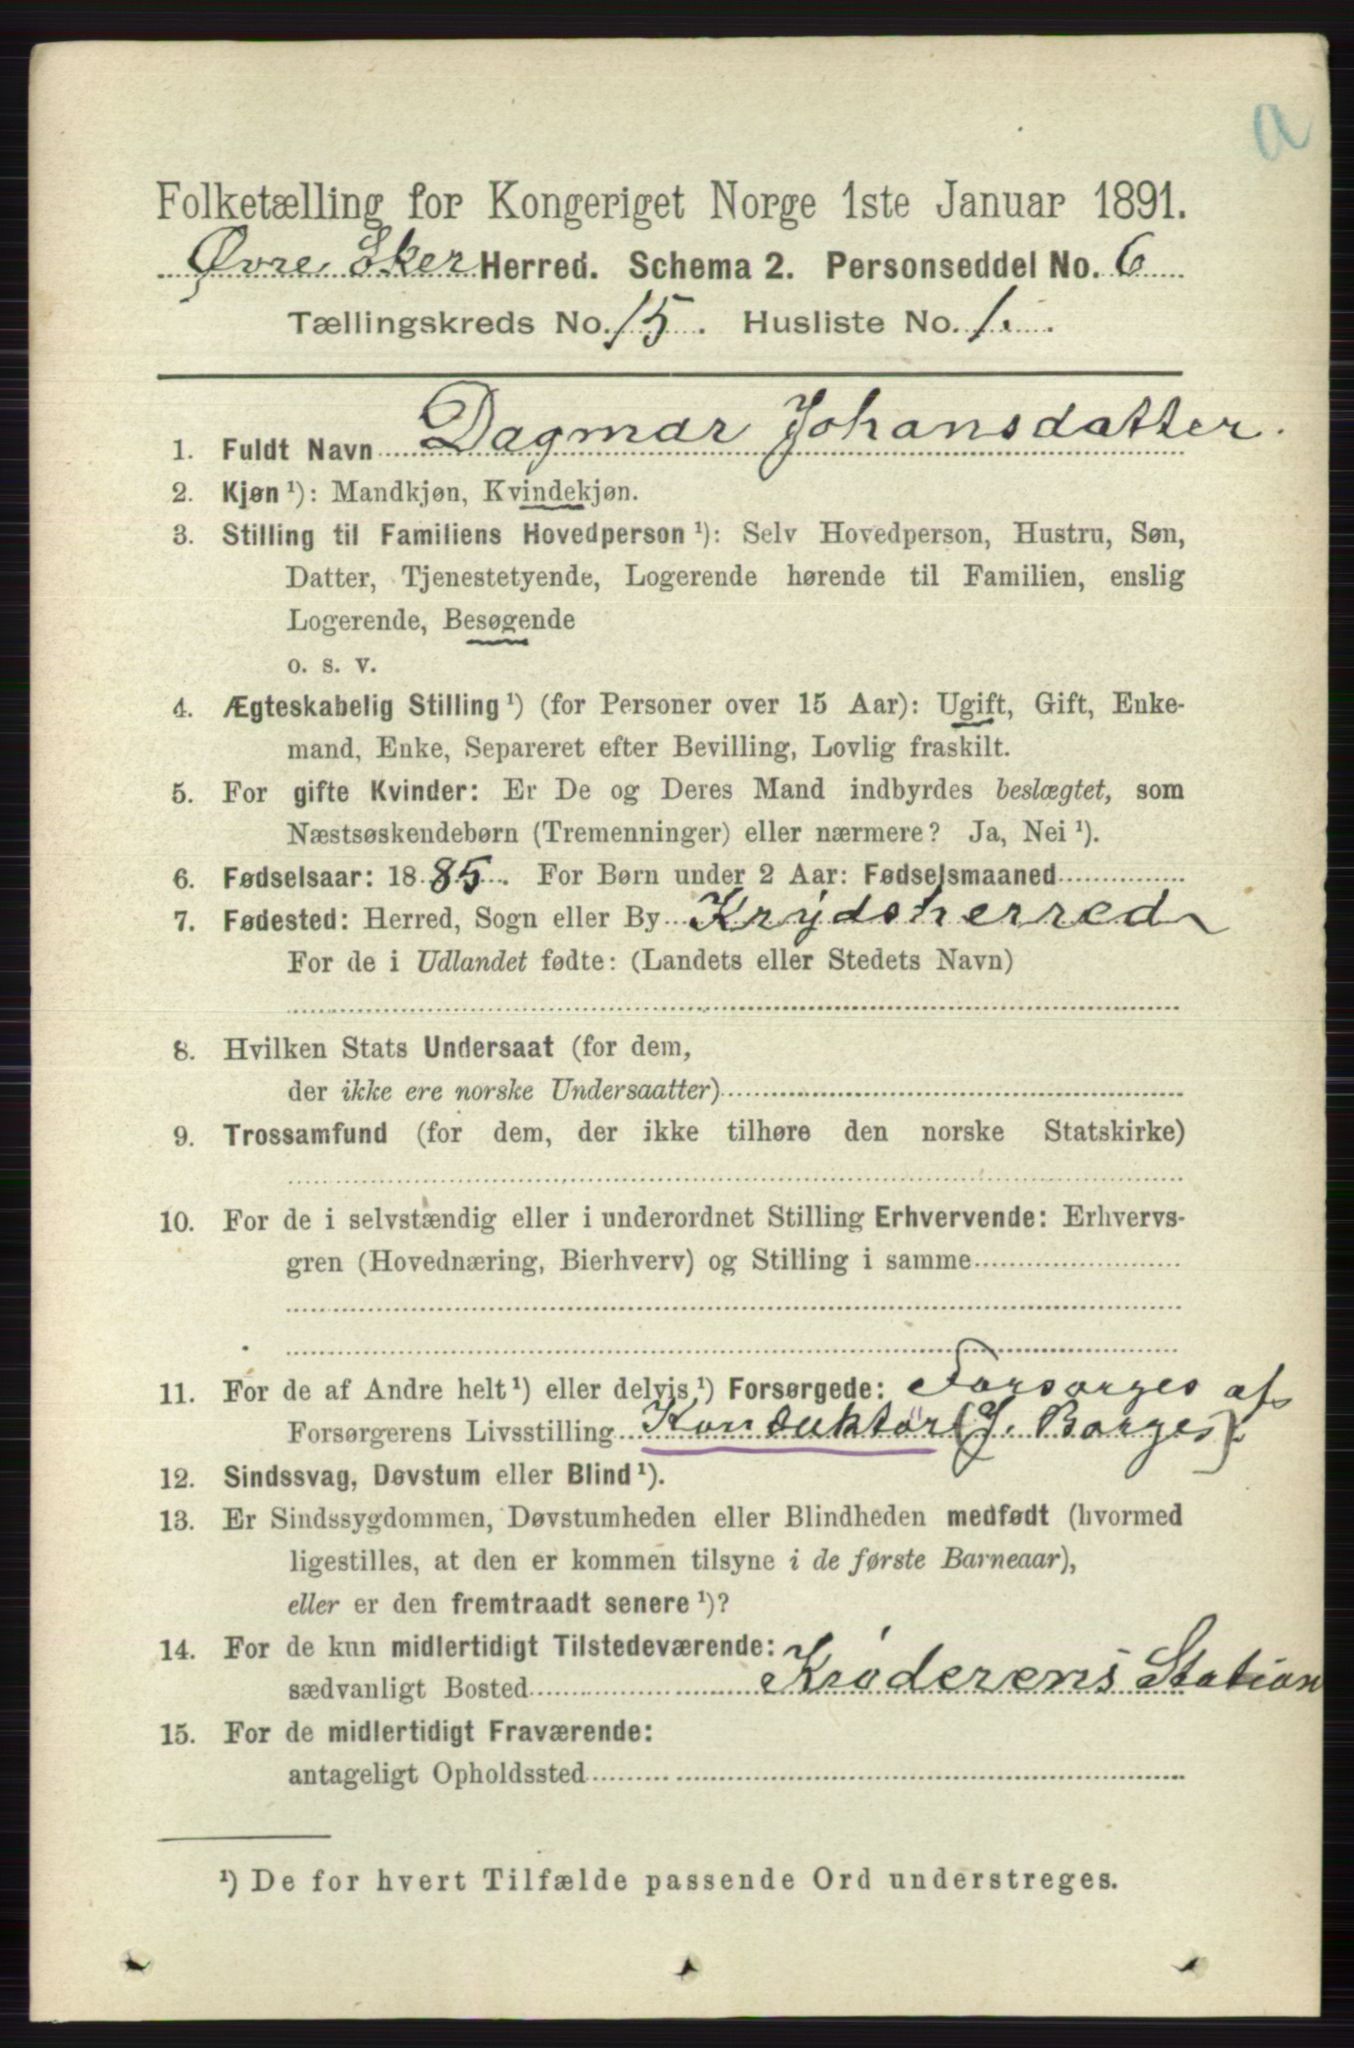 a
Folketælling for Kongeriget Norge 1ste Januar 1891.
Øvre Eker Herred. Schema 2. Personseddel No. 6
Tællingskreds No. 15. Husliste No. 1.
1. Fuldt Navn Dagmar Johansdatter.
2. Kjøn¹): Mandkjøn, Kvindekjøn.
3. Stilling til Familiens Hovedperson¹): Selv Hovedperson, Hustru, Søn,
Datter, Tjenestetyende, Logerende hørende til Familien, enslig
Logerende, Besøgende
o. s. v.
4. Ægteskabelig Stilling¹) (for Personer over 15 Aar): Ugift, Gift, Enke-
mand, Enke, Separeret efter Bevilling, Lovlig fraskilt.
5. For gifte Kvinder: Er De og Deres Mand indbyrdes beslægtet, som
Næstsøskendebørn (Tremenninger) eller nærmere? Ja, Nei¹).
6. Fødselsaar: 1885. For Børn under 2 Aar: Fødselsmaaned
7. Fødested: Herred, Sogn eller By Krydsherred
For de i Udlandet fødte: (Landets eller Stedets Navn)
8. Hvilken Stats Undersaat (for dem,
der ikke ere norske Undersaatter)
9. Trossamfund (for dem, der ikke tilhøre den norske Statskirke)
10. For de i selvstændig eller i underordnet Stilling Erhvervende: Erhvervs-
gren (Hovednæring, Bierhverv) og Stilling i samme
11. For de af Andre helt¹) eller delvis¹) Forsørgede: Forsørges af
Forsørgerens Livsstilling Konduktør (J. Borges).
12. Sindssvag, Døvstum eller Blind¹).
13. Er Sindssygdommen, Døvstumheden eller Blindheden medfødt (hvormed
ligestilles, at den er kommen tilsyne i de første Barneaar),
eller er den fremtraadt senere¹)?
14. For de kun midlertidigt Tilstedeværende:
sædvanligt Bosted Krøderens Station
15. For de midlertidigt Fraværende:
antageligt Opholdssted
¹) De for hvert Tilfælde passende Ord understreges.